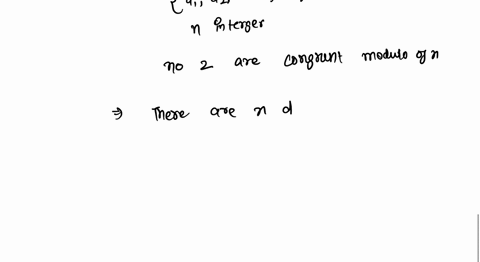 n interger
no 2 are congrunt modulo of n
⇒ There are n d